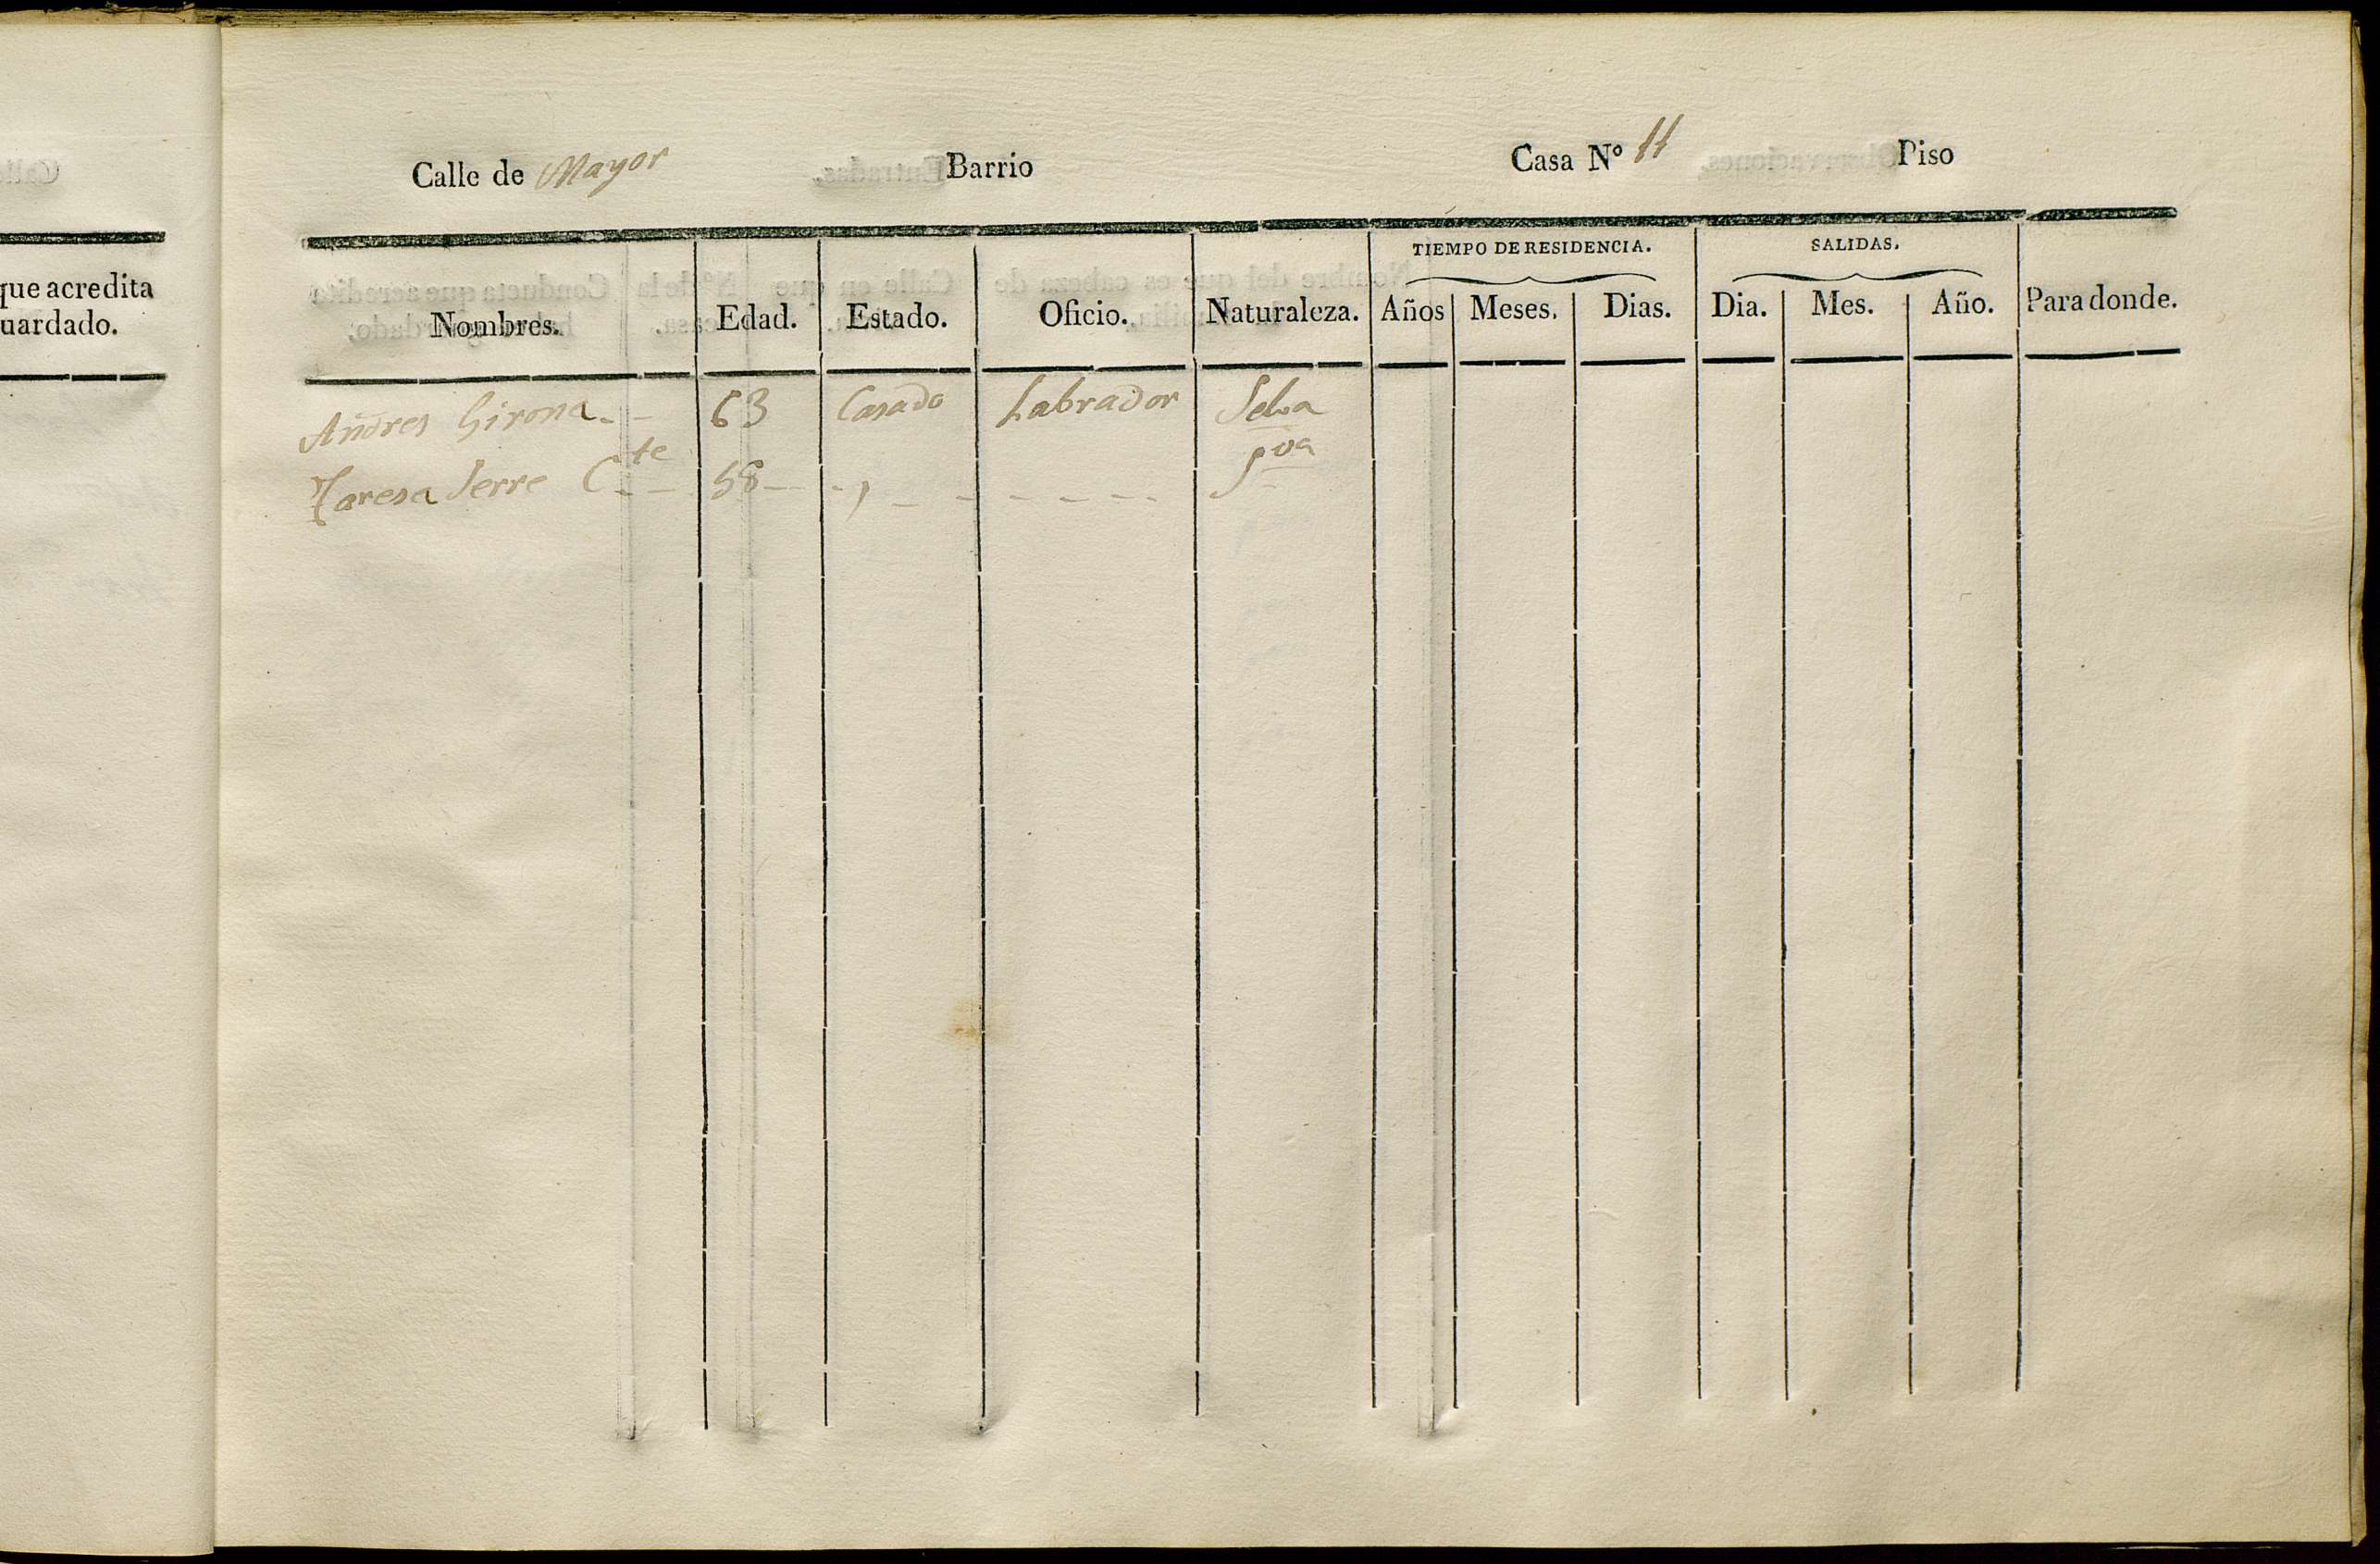 que acredita
uardado.
Calle de Mayor Barrio Casa Nº 11 Piso
TIEMPO DE RESIDENCIA. SALIDAS.
Nombres. Edad. Estado. Oficio. Naturaleza. Años Meses. Dias. Dia. Mes. Año. Para donde.
Andres Girona 63 Casado Labrador Selva
Taresa Serre C.te 58